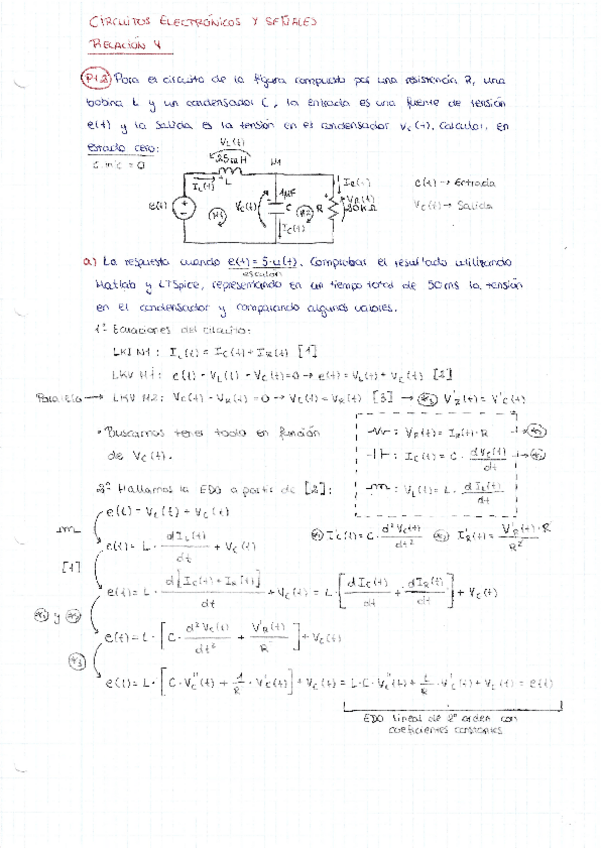 CIRCUITOS ELECTRÓNICOS Y SEÑALES
RELACIÓN 4
P1.2) Para el circuito de la figura compuesto por una resistencia R, una
bobina L y un condensador C, la entrada es una fuente de tensión
e(t) y la salida es la tensión en el condensador Vc(t). Calcular, en
estado cero:
VL(t)
25mH
L
IL(t)
e(t)
M1
Vc(t)
1μF
C
Ic(t)
M2
R
VR(t)
e(t) → Entrada
Vc(t) → Salida
a) La respuesta cuando e(t) = 5·u(t). Comprobar el resultado utilizando
escalón
Matlab y LTSpice, representando en un tiempo total de 50ms la tensión
en el condensador y comparando algunos valores.
1º Ecuaciones del circuito:
LKI N1: IL(t) = Ic(t) + IR(t) [1]
LKV M1: e(t) - VL(t) - Vc(t) = 0 → e(t) = VL(t) + Vc(t) [2]
Paralelo → LKV M2: Vc(t) - VR(t) = 0 → Vc(t) = VR(t) [3] → *3 V'R(t) = V'c(t)
• Buscamos tener todo en función
de Vc(t).
: VR(t) = IR(t)·R
: Ic(t) = C · dVc(t)/dt
: VL(t) = L · dIL(t)/dt
2º Hallamos la EDO a partir de [2]:
e(t) = VL(t) + Vc(t)
e(t) = L · dIL(t)/dt + Vc(t)
I'c(t) = C · d²Vc(t)/dt²
I'R(t) = V'R(t)·R/R²
[1]
e(t) = L · d[Ic(t) + IR(t)]/dt + Vc(t) = L · [dIc(t)/dt + dIR(t)/dt] + Vc(t)
e(t) = L · [C · d²Vc(t)/dt² + V'R(t)/R] + Vc(t)
*3
e(t) = L · [C · Vc''(t) + 1/R · Vc'(t)] + Vc(t) = L·C·Vc''(t) + L/R · Vc'(t) + Vc(t) = e(t)
EDO lineal de 2º orden con
coeficientes constantes